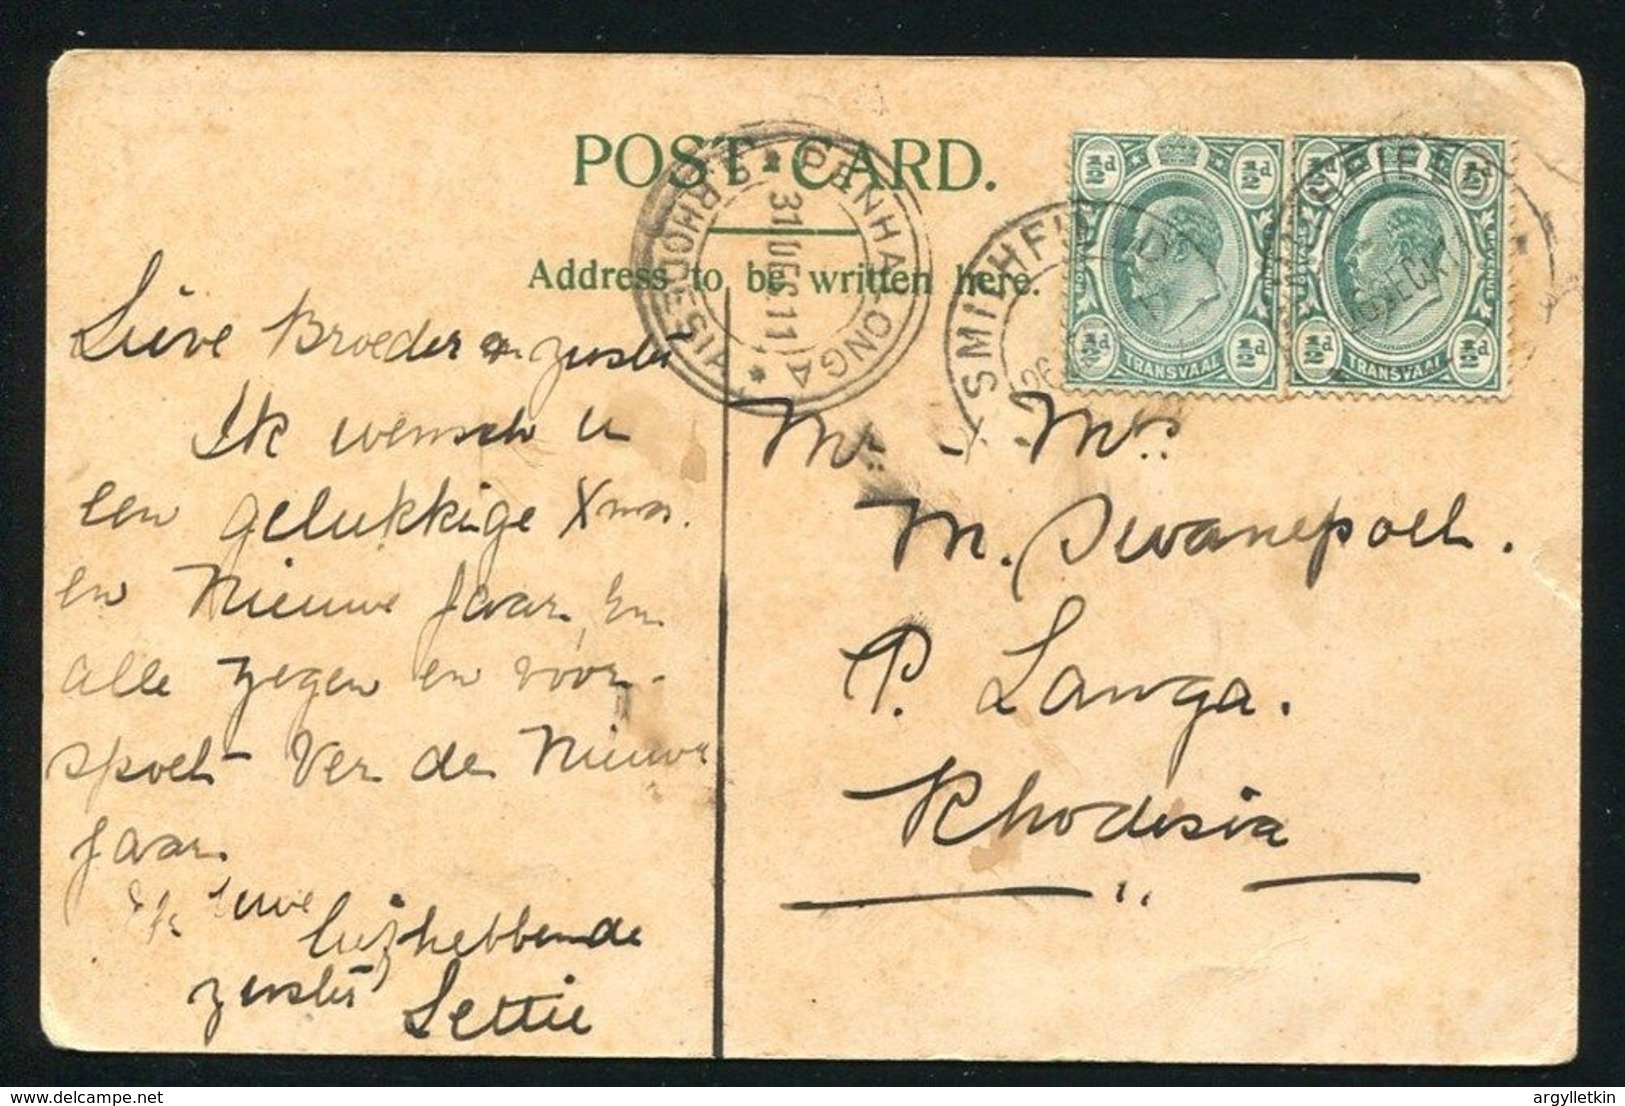 POST CARD.
Address to be written here.
PENHALONGA
S. RHODESIA
31 DEC 11
SMITHFIELD
26
SMITHFIELD
½d ½d
TRANSVAAL
½d ½d
½d ½d
TRANSVAAL
½d ½d
Lieve Broeder en zuster
Ik wensch u
een gelukkige Xmas.
en Nieuwe Jaar, En
alle zegen en voor-
spoet Ver de Nieuwe
Jaar.
liefhebbende
zuster
Lettie
Mr. - Mrs.
M. Swanepoel.
P. Langa.
Rhodesia
argylletkin